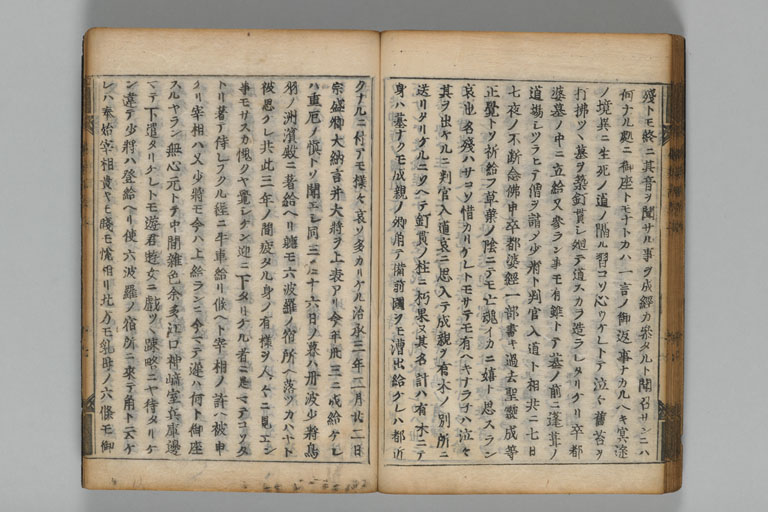 殘トモ終ニ其音ヲ聞サル事ヲ成經カ参タルト聞召サンニハ
何ナル處ニ御座トモナトカハ一言ノ御返事ナカルヘキ冥途
ノ境異ニ生死ノ道ノ隔ル習コソ心ウケレトテ泣々舊苔ヲ
打拂ツヽ墓ヲ築釘貫シ廻テ道スカラ造ラレタリケリ卒都
婆墓ノ中ニ立給又参ラン事モ有難トテ墓ノ前ニ蓬葺ノ
道場シツラヒテ僧ヲ請シ少將ト判官入道ト相共ニ二七日
七夜ノ不断念佛申卒都婆經一部書キ過去聖靈成等
正覺トソ祈給フ草葉ノ陰ニテモ亡魂イカニ嬉ト思スラン
哀也名殘ハサコソ惜カリケレトモサテモ有ヘキナラ子ハ泣々
其ヲ出ケルニ判官入道哀ニ思入テ成親ヲ有木ノ別所ニ
送リタリケルニソヘテ釘貫ノ柱ニ朽果ヌ其名計ハ有木ニテ
身ハ墓ナクモ成親ノ卿角テ備前國ヲモ漕出給ケレハ都近
クナルニ付テモ様々哀ソ多カリケル治承三年二月廿二日
宗盛卿大納言并大將ヲ上表アリ今年卅三ニ成給ケレ
ハ重厄ノ愼トソ聞エシ同三月十六日ノ暮ハ丹波少將鳥
羽ノ洲濱殿ニ著給ヘリ軈モ六波羅ノ宿所ヘ落ツカハヤト
被思ケレ共此三年ノ間疲タル身ノ有様ヲ人々ニ見エン
事モサスカ愧クヤ覺シケン迎ニ下タリケル者ニ忍ヒテコヽタ
トリ著テ侍レフクル程ニ牛車給リ候ヘト宰相ノ許ヘ被申
ケリ宰相ハ又少將モ今ハ上給ランニ今マテ遅ハ何ト御座
スルヤラン無心元トテ中間雑色余多江口神崎室兵庫邊
マテ下遣タリケレトモ遊君遊女ニ戯ツヽ踈略ニヤ待タリケ
ン違テ少將ハ登給ヘリ使六波羅ノ宿所ニ來テ角ト云ケ
レハ奉始宰相貴キモ賤モ悦相リ北方モ乳母ノ六條モ御